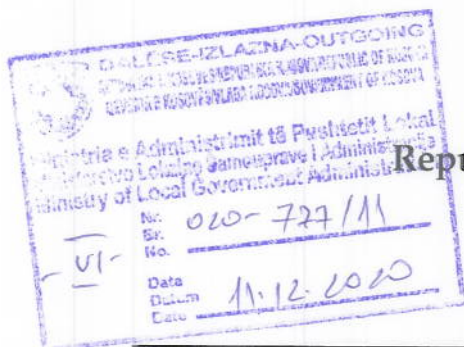 DALËSE-IZLAZNA-OUTGOING
Ministria e Administrimit të Pushtetit Lokal
Ministarstvo Lokalne Samouprave i Administracije
Ministry of Local Government Administration
Repu
Nr.
Br.
No.
020-727/11
-VI-
Data
Datum
Date
11.12.2020